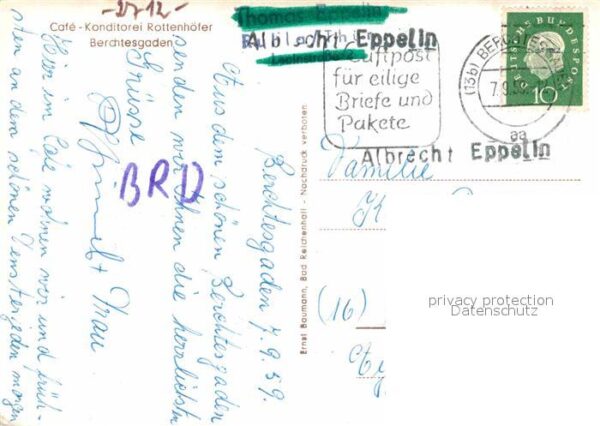 -2712-
Café - Konditorei Rottenhöfer
Berchtesgaden
Berchtesgaden 7.9.59.
Aus dem schönen Berchtesgaden
senden wir Ihnen die herzlichsten
Grüsse
+ Frau
Hier im Cafe wohnen wir und früh-
sten an dem schönen Fenster jeden morgen
BRD
Ernst Baumann, Bad Reichenhall - Nachdruck verboten
Thomas Eppelin
Albrecht Eppelin
Luftpost
für eilige
Briefe und
Pakete
(13b) BERCHTESGADEN
7.9.59
aa
DEUTSCHE BUNDESPOST
10
Albrecht Eppelin
Familie
(16)
privacy protection
Datenschutz